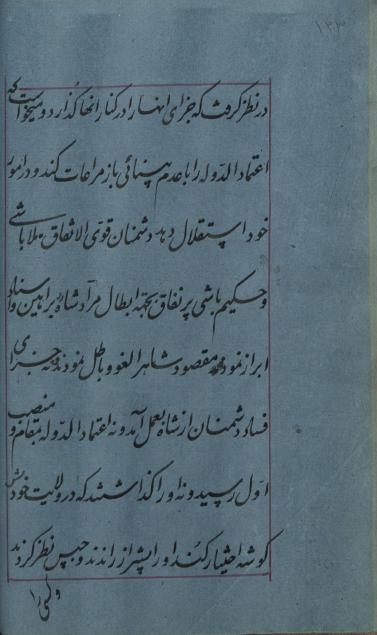 ۱۳۳
در نظر گرفت که جزای اینها را در کنار انها گذارد و میخواست که
اعتماد الدوله را با عدم بینائی باز مراعات کند و در امور
خود استقلال دهد دشمنان قوی الاتفاق ملا باشی
و حکیم باشی پر نفاق بجهة ابطال مرآد شاه براهین و اسناد
ابراز نمود مقصود شاهرا لغو و باطل نمودند نه جزای
فساد دشمنان از شاه بعمل آمد و نه اعتماد الدوله بمقام و منصب
اول رسید و نه او را گذاشتند که در ولایت خودش
کوشه اختیار کند او را بشیراز راندند و حبس نظر کردند